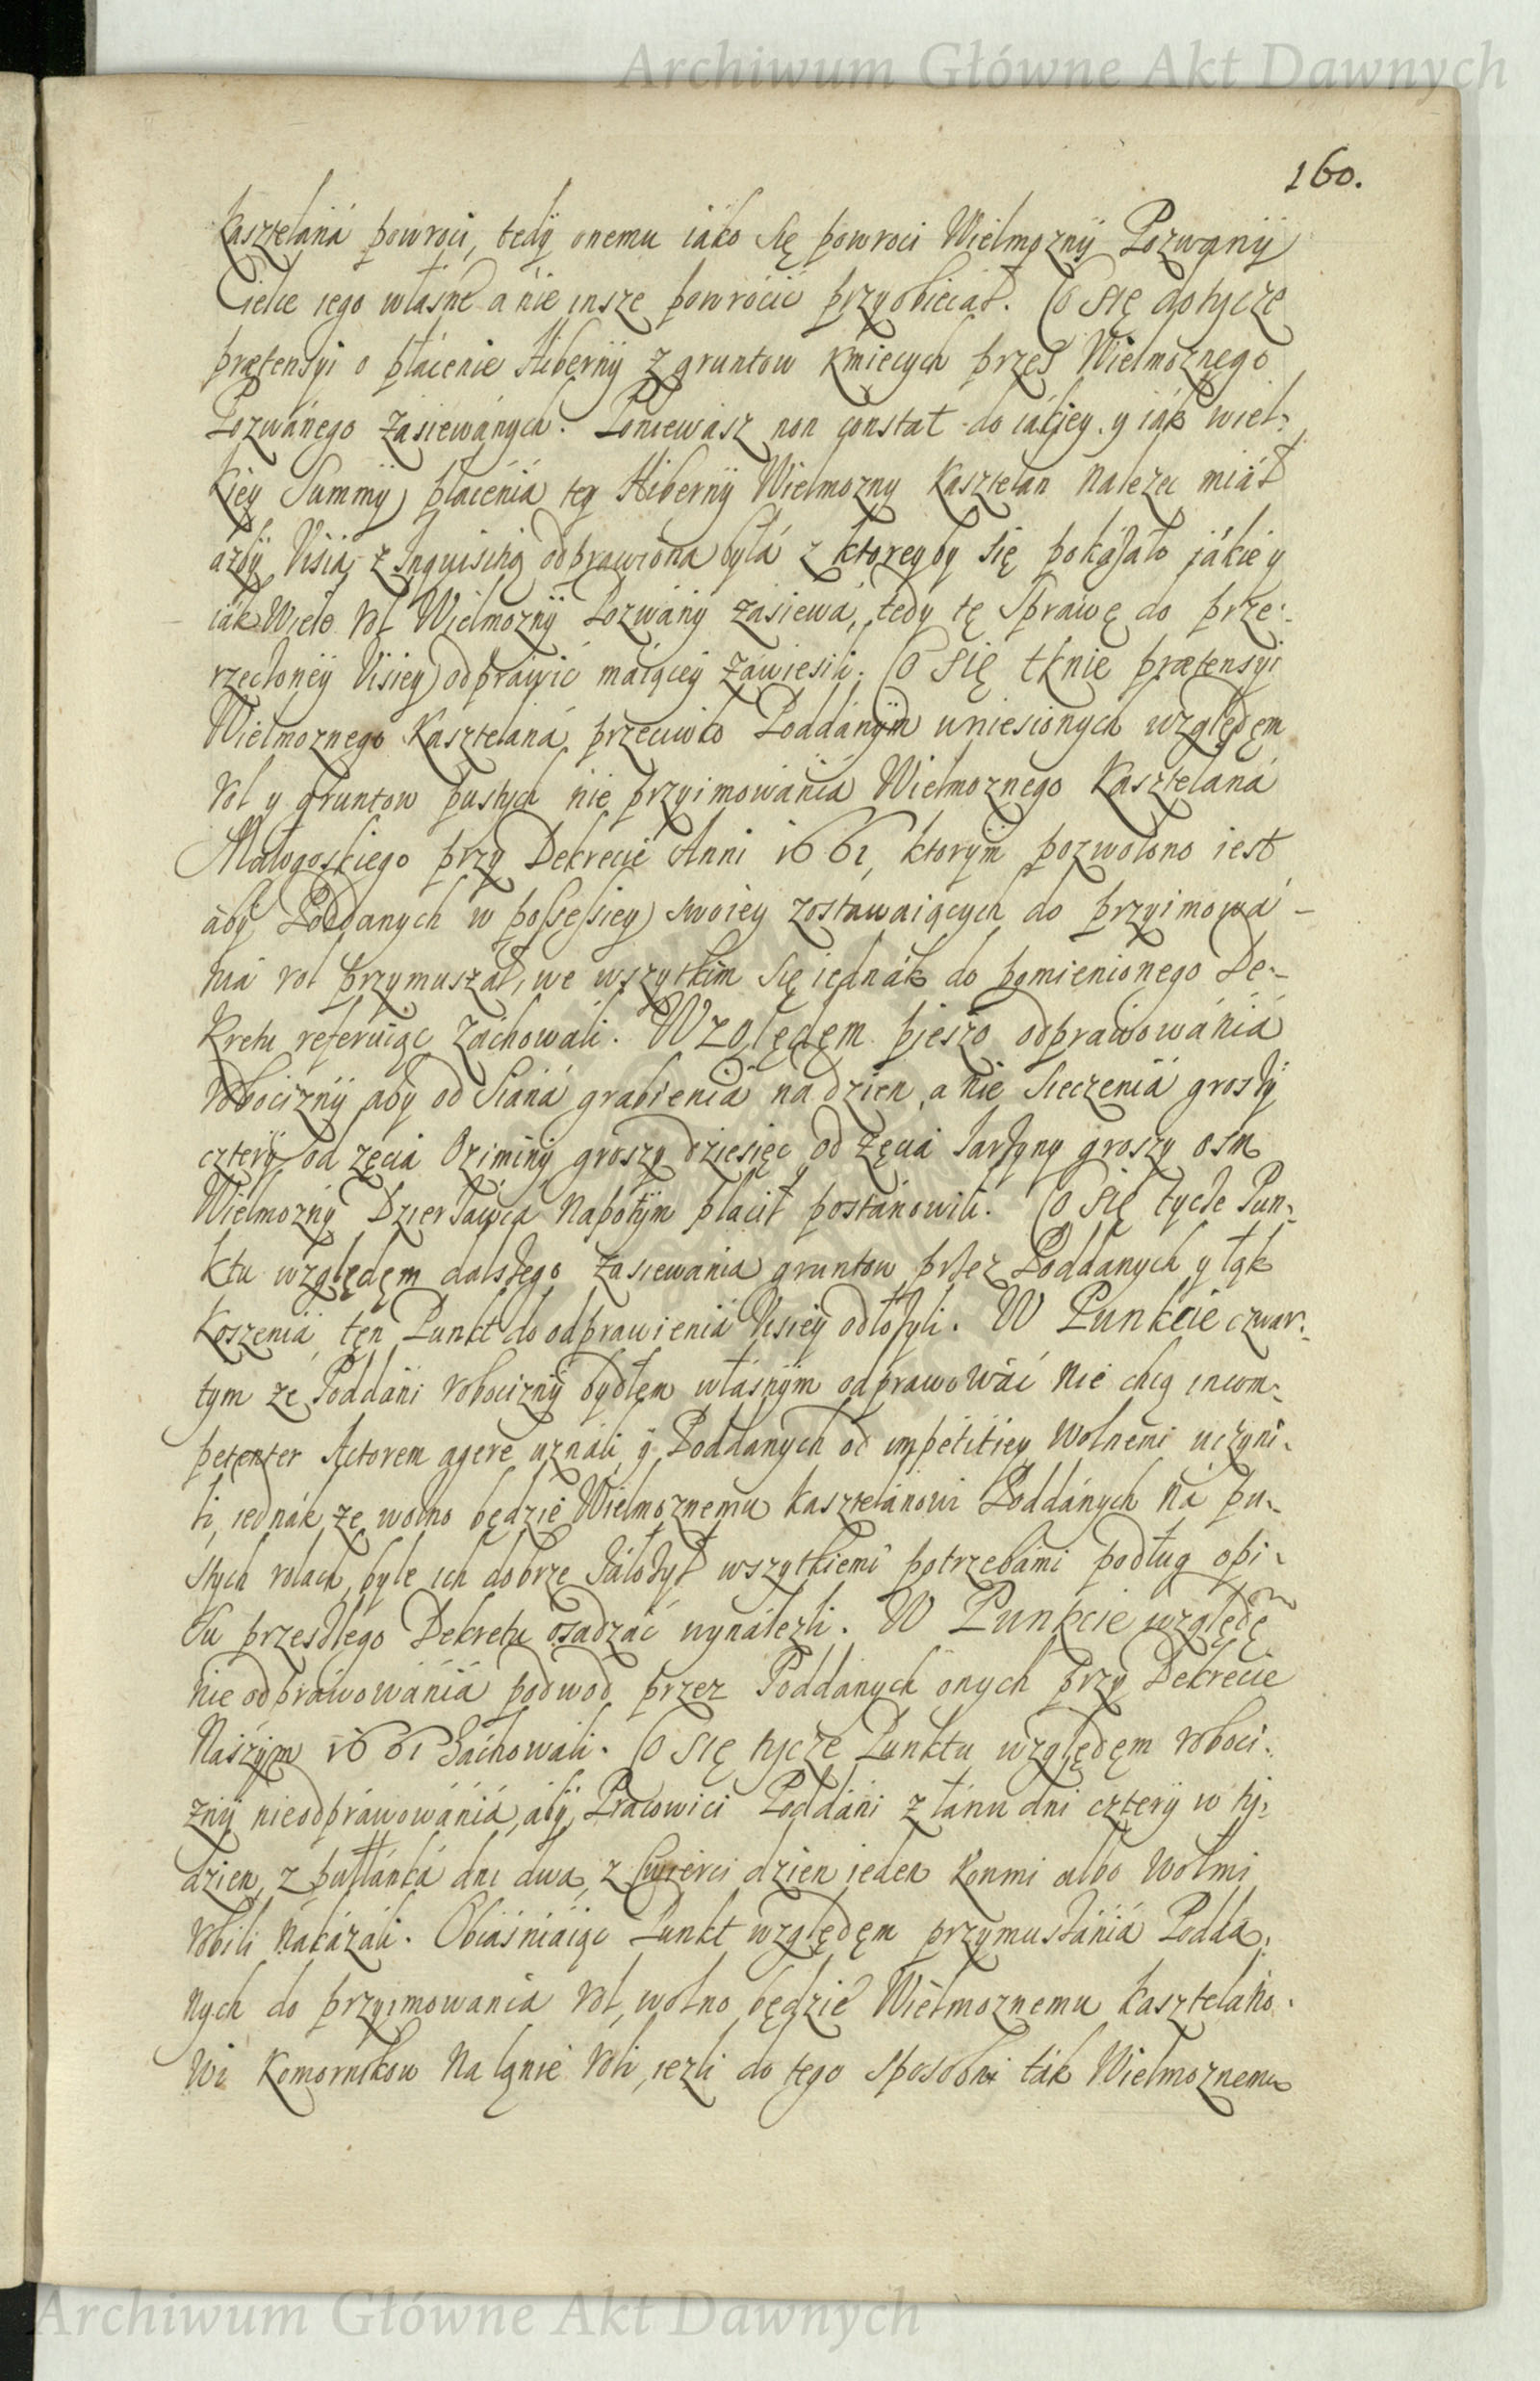 Archiwum Główne Akt Dawnych
160.
Kasztelaná powroci, tedÿ onemu iáko się powroci Wielmoznÿ Pozwanÿ
Cielce iego własne a nie insze powrócić przyobiecał. Co się dotycze
prætensyi o płácenie Hibernÿ z gruntow kmiecych przes Wielmoznego
Pozwánego zásiewánych. Poniewasz non constat do iákiey y iák wiel-
kiey Summÿ płacenia tey Hibernÿ Wielmozny Kasztelan nalezec miáł
ázby Visia z Inquisitią odprawiona była z ktoreyby się pokazáło jákie y
iák wiele rol Wielmoznÿ Pozwány zásiewá, tedy tę Spráwę do prze-
rzeczoneÿ Visiey odpráwić máiącey záwiesili. Co się tknie prætensyi
Wielmoznego Kasztelaná przeciwko Poddánÿm wniesionych względęm
rol y gruntow pustych nie przyimowánia Wielmoznego Kasztelaná
Małogoskiego przy Dekrecie Anni 1661, ktorym pozwolono iest
ábÿ Poddanych w possessiey swoiey zostawaiących do przyimowá-
nia rol przymuszáł, we wszytkim się iednák do pomienionego De-
kretu referuiąc záchowáli. Względęm pieszo odprawowániá
robociznÿ aby od Siáná grabienia na dzien, a nie sieczenia groszy
czterÿ od zęcia Oziminÿ groszy dziesięc od zęcia Jarzyny groszy osm
Wielmoznÿ Dzierzáwca nápotÿm płácił postánowili. Co się tycze Pun-
ktu względęm dalszego zásiewania gruntow przez Poddanych y łąk
koszenia, ten Punkt do odprawienia Visieÿ odłozyli. W Punkcie czwar-
tym ze Poddáni robociznÿ bydłem własnÿm odprawowáć nie chcą incom-
petenter Actorem agere uználi, ÿ Poddanych od impetitiey wolnemi uczyni-
li, iednák ze wolno będzie Wielmoznemu Kasztelánowi Poddánych ná pu-
stych rolach, byle ich dobrze záłozył wszytkiemi potrzebámi podług opi-
su przeszłego Dekretu osadzáć wynálezli. W Punkcie względę
nie odpráwowánia podwod przez Poddánych onych przy Dekrecie
Nászym 1661 záchowáli. Co się tycze Punktu względęm roboci-
znÿ nieodpráwowánia, ábÿ Prácowici Poddáni z łánu dni czterÿ w ty-
dzien, z pułłánká dni dwa, z Cwierci dzien ieden konmi albo wołmi
robili nákázáli. Obiásniáiąc Punkt względęm przymuszánia Podda-
nych do przyimowania rol, wolno będzie Wielmoznemu kasztelano-
wi Komornikow na łąnie roli, iezli do tego sposobni ták Wielmoznemu
Archiwum Główne Akt Dawnych